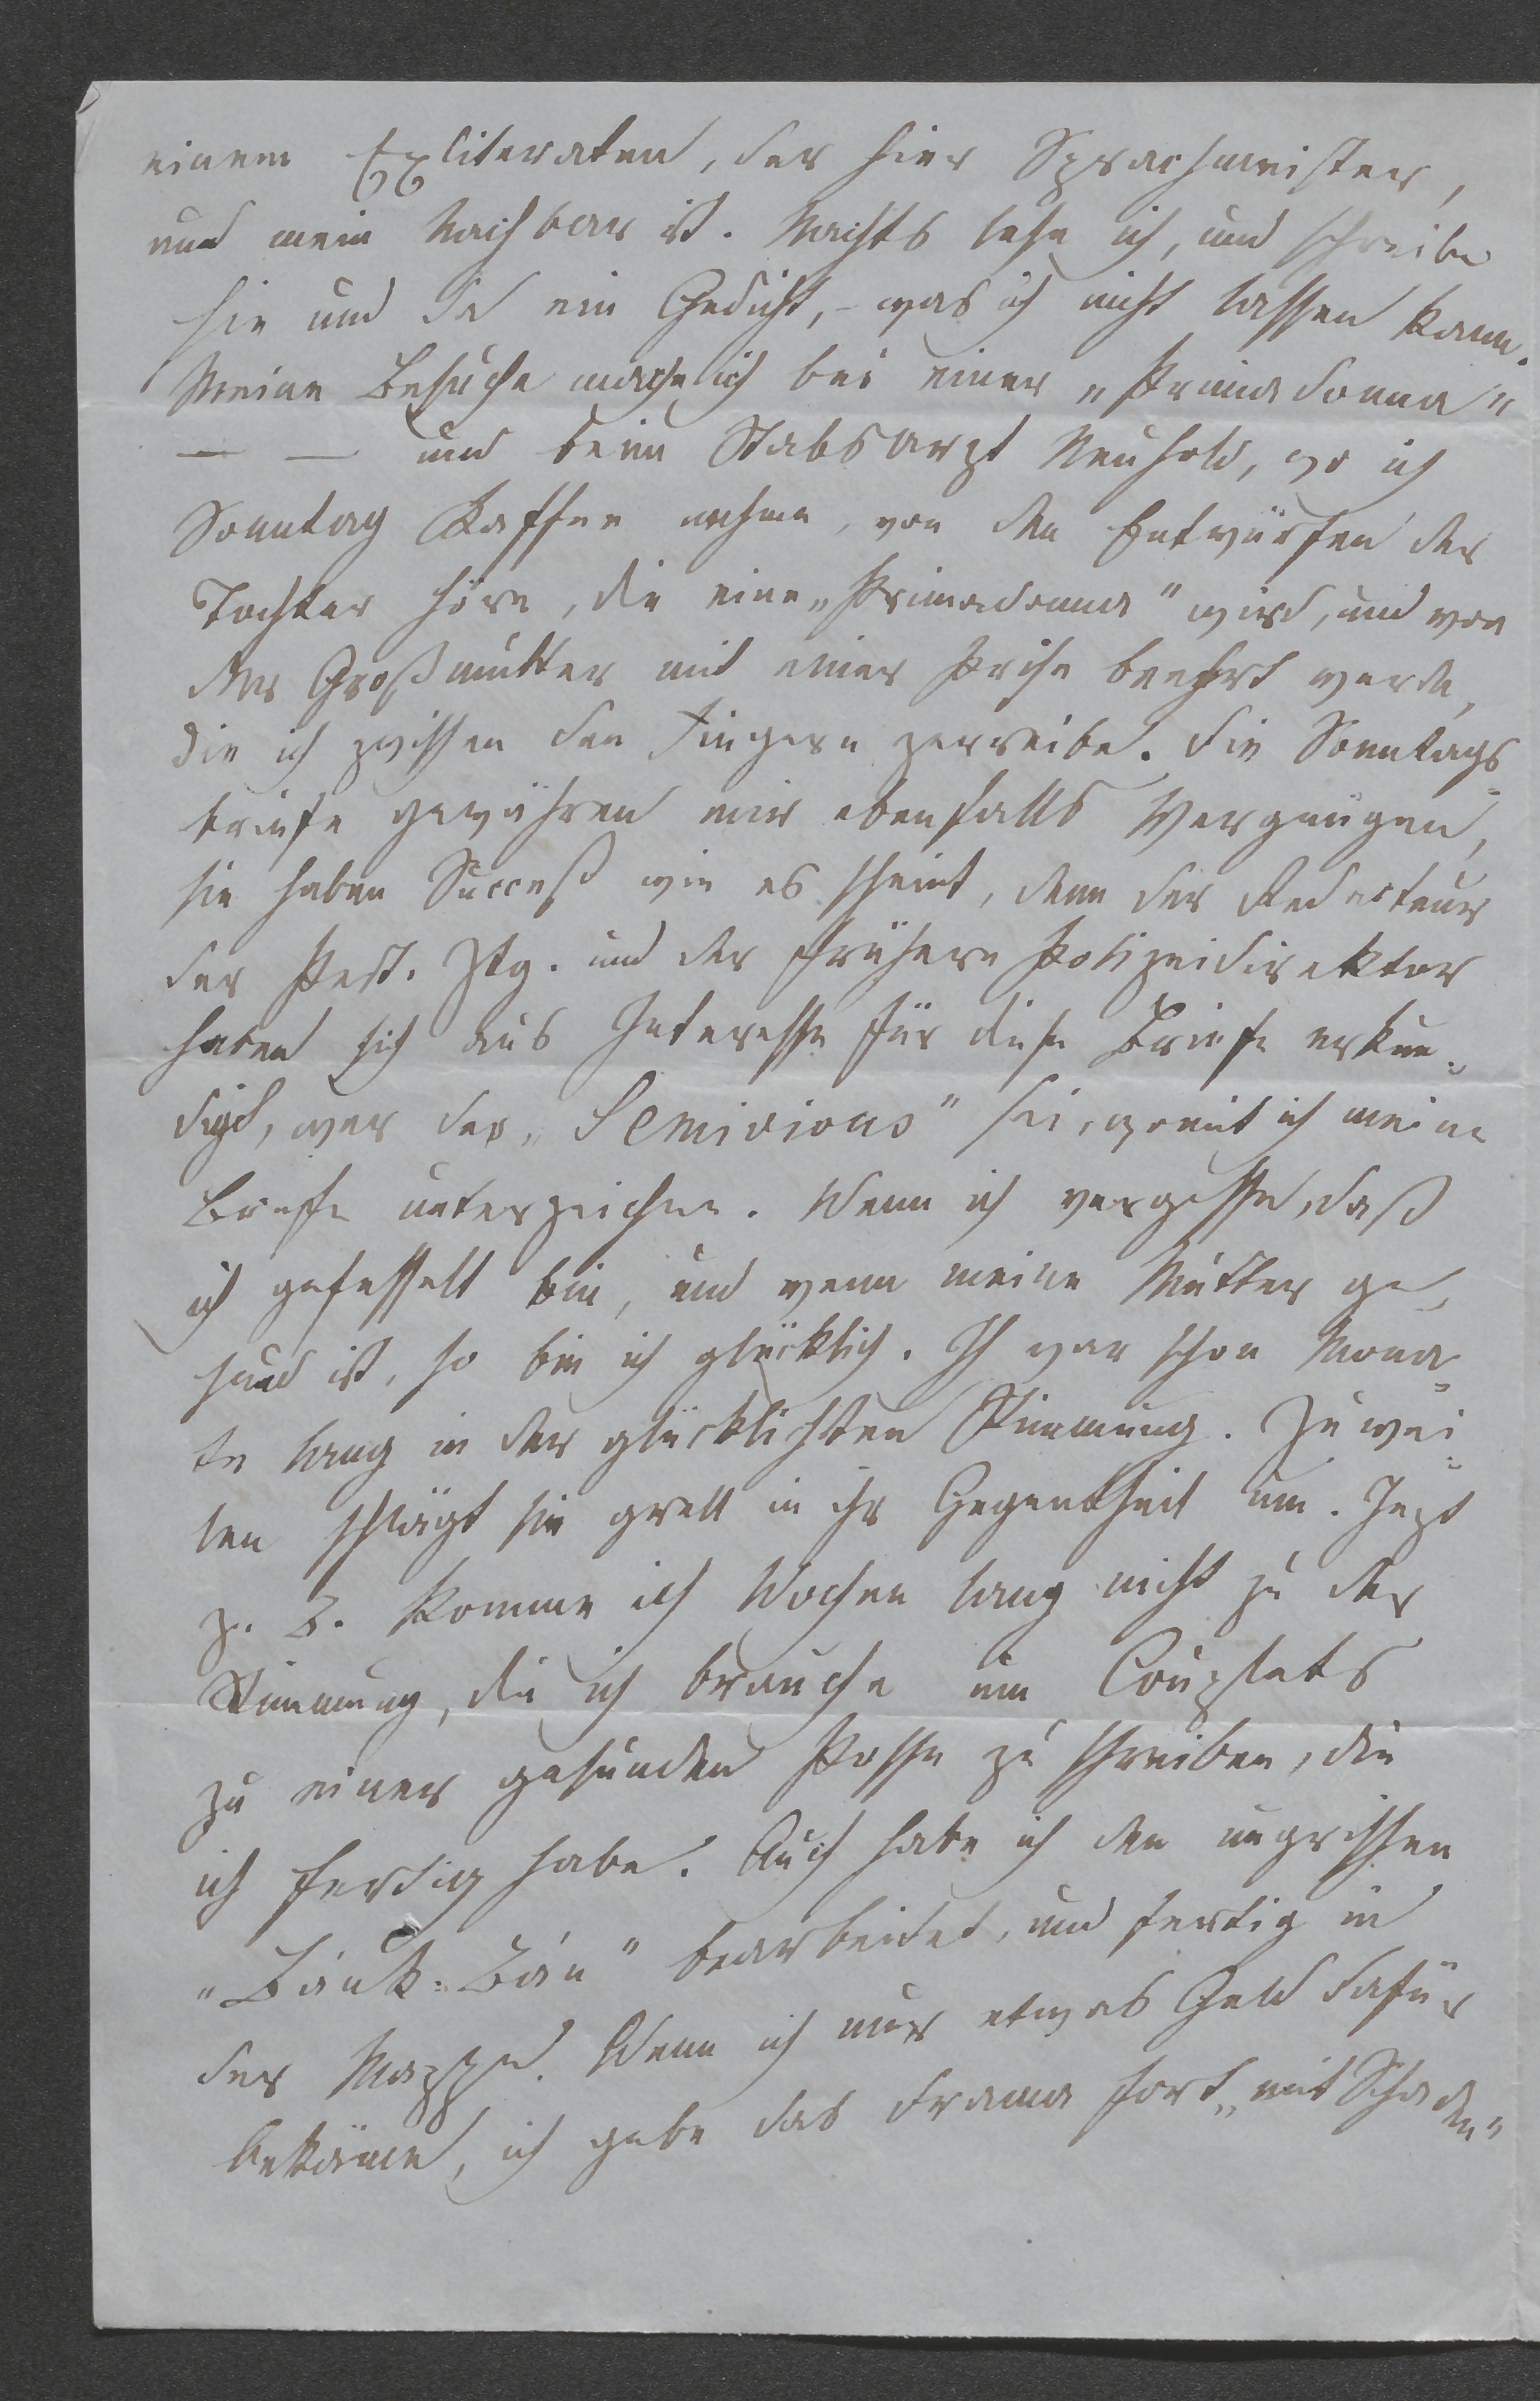 einem Exliteraten, der hier Sprachmeister,
und mein Nachbar ist. Nachts lese ich, und schreibe
hie und da ein Gedicht, – was ich nicht lassen kann.
Meine Besuche mache ich bei einer „Primadonna"
— — und beim Stabsarzt Neuhold, wo ich
Sonntag Kaffee nehme, von den Entwürfen der
Tochter höre, die eine „Primadonna" wird, und von
der Großmutter mit einer Prise beehrt werde,
die ich zwischen den Fingern zerreibe. Die Sonntags-
briefe gewähren mir ebenfalls Vergnügen,
sie haben Succeß wie es scheint, denn der Redacteur
der Pest. Ztg. und der frühere Polizeidirektor
haben sich aus Interesse für diese Briefe erkun-
digt, wer der „Semirious" sei, womit ich meine
Briefe unterzeichne. Wenn ich vergesse, daß
ich gefesselt bin, und wenn meine Mutter ge-
sund ist, so bin ich glücklich. Ich war schon Mona-
te lang in der glücklichsten Stimmung. Zuwei-
len schlägt sie grell in ihr Gegentheil um. Jezt
z. B. komme ich Wochen lang nicht zu der
Stimmung, die ich brauche um Couplets
zu einer gesunden Posse zu schreiben, die
ich fertig habe. Auch habe ich den ungrischen
„Bánk-Bán" bearbeitet, und fertig in
der Mappe. Wenn ich nur etwas Geld dafür
bekäme, ich gebe das Drama fort „mit Schaden"